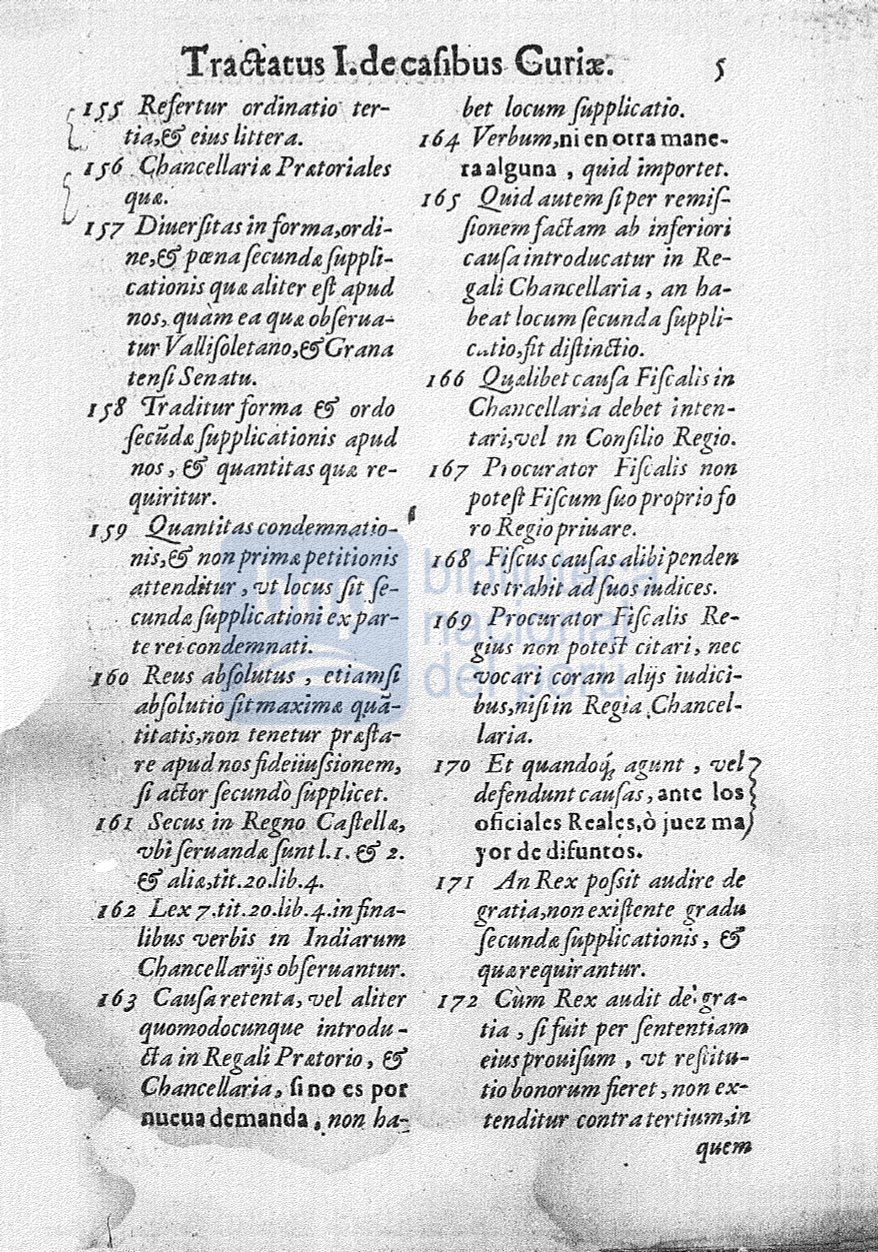 Tractatus I. de casibus Curiæ. 5
155 Refertur ordinatio ter-
tia, & eius littera.
156 Chancellariæ Prætoriales
quæ.
157 Diuersitas in forma, ordi-
ne, & pœna secundæ suppli-
cationis quæ aliter est apud
nos, quàm ea quæ obserua-
tur Vallisoletano, & Grana
tensi Senatu.
158 Traditur forma & ordo
secũdæ supplicationis apud
nos, & quantitas quæ re-
quiritur.
159 Quantitas condemnatio-
nis, & non primæ petitionis
attenditur, vt locus sit se-
cundæ supplicationi ex par-
te rei condemnati.
160 Reus absolutus, etiamsi
absolutio sit maximæ quã-
titatis, non tenetur præsta-
re apud nos fideiiussionem,
si actor secundò supplicet.
161 Secus in Regno Castellæ,
vbi seruandæ sunt l.1. & 2.
& aliæ, tit.20.lib.4.
162 Lex 7.tit.20.lib.4.in fina-
libus verbis in Indiarum
Chancellarijs obseruantur.
163 Causa retenta, vel aliter
quomodocunque introdu-
cta in Regali Prætorio, &
Chancellaria, si no es por
nueua demanda, non ha-
bet locum supplicatio.
164 Verbum, ni en otra mane-
ra alguna, quid importet.
165 Quid autem si per remis-
sionem factam ab inferiori
causa introducatur in Re-
gali Chancellaria, an ha-
beat locum secunda suppli-
catio, fit distinctio.
166 Quælibet causa Fiscalis in
Chancellaria debet inten-
tari, vel in Consilio Regio.
167 Procurator Fiscalis non
potest Fiscum suo proprio fo
ro Regio priuare.
168 Fiscus causas alibi penden
tes trahit ad suos iudices.
169 Procurator Fiscalis Re-
gius non potest citari, nec
vocari coram alijs iudici-
bus, nisi in Regia Chancel-
laria.
170 Et quandoq; agunt, vel
defendunt causas, ante los
oficiales Reales, ò juez ma
yor de difuntos.
171 An Rex possit audire de
gratia, non existente gradu
secundæ supplicationis, &
quæ requirantur.
172 Cùm Rex audit de gra-
tia, si fuit per sententiam
eius prouisum, vt restitu-
tio bonorum fieret, non ex-
tenditur contra tertium, in
quem
biblioteca
nacional
del perú
bnp